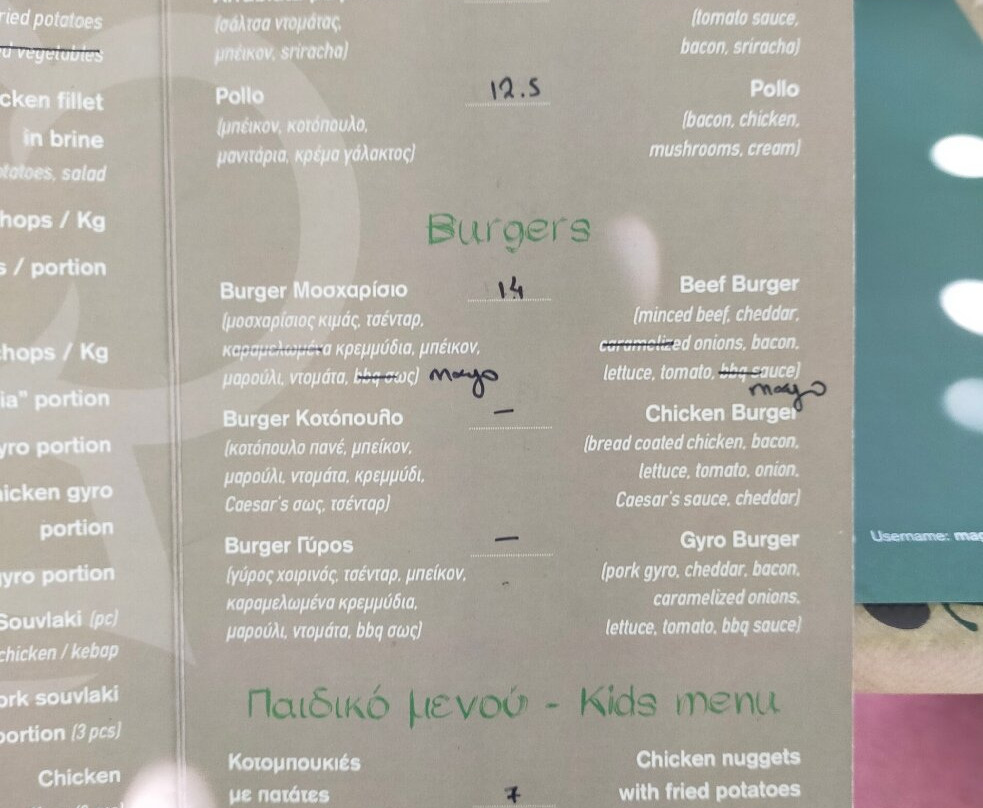 ried potatoes
d vegetables
cken fillet
in brine
otatoes, salad
hops / Kg
s / portion
chops / Kg
ia" portion
yro portion
hicken gyro
portion
gyro portion
Souvlaki (pc)
chicken / kebap
ork souvlaki
portion (3 pcs)
Chicken
(σάλτσα ντομάτας,
μπέικον, sriracha)
(tomato sauce,
bacon, sriracha)
Pollo 12.5 Pollo
(μπέικον, κοτόπουλο,
μανιτάρια, κρέμα γάλακτος)
(bacon, chicken,
mushrooms, cream)
Burgers
Burger Μοσχαρίσιο 14 Beef Burger
(μοσχαρίσιος κιμάς, τσένταρ,
καραμελωμένα κρεμμύδια, μπέικον,
μαρούλι, ντομάτα, bbq σως) mayo
(minced beef, cheddar,
caramelized onions, bacon,
lettuce, tomato, bbq sauce)
mayo
Burger Κοτόπουλο – Chicken Burger
(κοτόπουλο πανέ, μπείκον,
μαρούλι, ντομάτα, κρεμμύδι,
Caesar's σως, τσένταρ)
(bread coated chicken, bacon,
lettuce, tomato, onion,
Caesar's sauce, cheddar)
Burger Γύρος – Gyro Burger
(γύρος χοιρινός, τσένταρ, μπείκον,
καραμελωμένα κρεμμύδια,
μαρούλι, ντομάτα, bbq σως)
(pork gyro, cheddar, bacon,
caramelized onions,
lettuce, tomato, bbq sauce)
Παιδικό μενού - Kids menu
Κοτομπουκιές
με πατάτες 7
Chicken nuggets
with fried potatoes
Username: mag